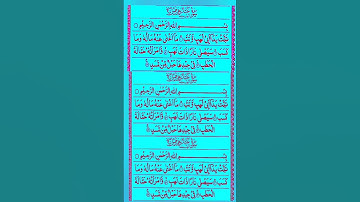 بِسْمِ اللهِ الرَّحْمٰنِ الرَّحِيْمِ
تَبَّتْ يَدَآ اَبِيْ لَهَبٍ وَّتَبَّ مَآ اَغْنٰى عَنْهُ مَالُهٗ وَمَا
كَسَبَ سَيَصْلٰى نَارًا ذَاتَ لَهَبٍ وَّامْرَاَتُهٗ حَمَّالَةَ
الْحَطَبِ فِيْ جِيْدِهَا حَبْلٌ مِّنْ مَّسَدٍ
بِسْمِ اللهِ الرَّحْمٰنِ الرَّحِيْمِ
تَبَّتْ يَدَآ اَبِيْ لَهَبٍ وَّتَبَّ مَآ اَغْنٰى عَنْهُ مَالُهٗ وَمَا
كَسَبَ سَيَصْلٰى نَارًا ذَاتَ لَهَبٍ وَّامْرَاَتُهٗ حَمَّالَةَ
الْحَطَبِ فِيْ جِيْدِهَا حَبْلٌ مِّنْ مَّسَدٍ
بِسْمِ اللهِ الرَّحْمٰنِ الرَّحِيْمِ
تَبَّتْ يَدَآ اَبِيْ لَهَبٍ وَّتَبَّ مَآ اَغْنٰى عَنْهُ مَالُهٗ وَمَا
كَسَبَ سَيَصْلٰى نَارًا ذَاتَ لَهَبٍ وَّامْرَاَتُهٗ حَمَّالَةَ
الْحَطَبِ فِيْ جِيْدِهَا حَبْلٌ مِّنْ مَّسَدٍ